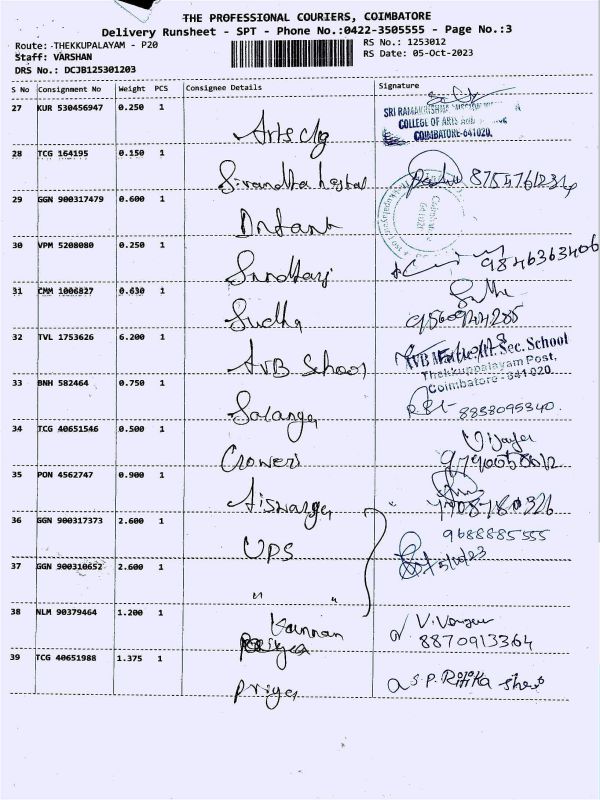 THE PROFESSIONAL COURIERS, COIMBATORE
Delivery Runsheet - SPT - Phone No.:0422-3505555 - Page No.:3
Route: THEKKUPALAYAM - P20
RS No.: 1253012
Staff: VARSHAN
RS Date: 05-Oct-2023
DRS No.: DCJB125301203
S No Consignment No Weight PCS Consignee Details Signature
27 KUR 530456947 0.250 1
SRI RAMAKRISHNA
COLLEGE OF ARTS
COIMBATORE-641020.
Arts clg
28 TCG 164195 0.150 1
8755761234
29 GGN 900317479 0.600 1
30 VPM 5208080 0.250 1
9846363406
31 CMM 1006827 0.630 1
Sudha
32 TVL 1753626 6.200 1
AVB School
AVB Matric.Hr.Sec.School
Thekkuppalayam Post,
Coimbatore-641 020.
33 BNH 582464 0.750 1
8838095340.
34 TCG 40651546 0.500 1
35 PON 4562747 0.900 1
36 GGN 900317373 2.600 1
UPS
9688885555
37 GGN 900310652 2.600 1
" "
38 NLM 90379464 1.200 1
Kannan
8870913364
39 TCG 40651988 1.375 1
Priya
S.P. Ritika